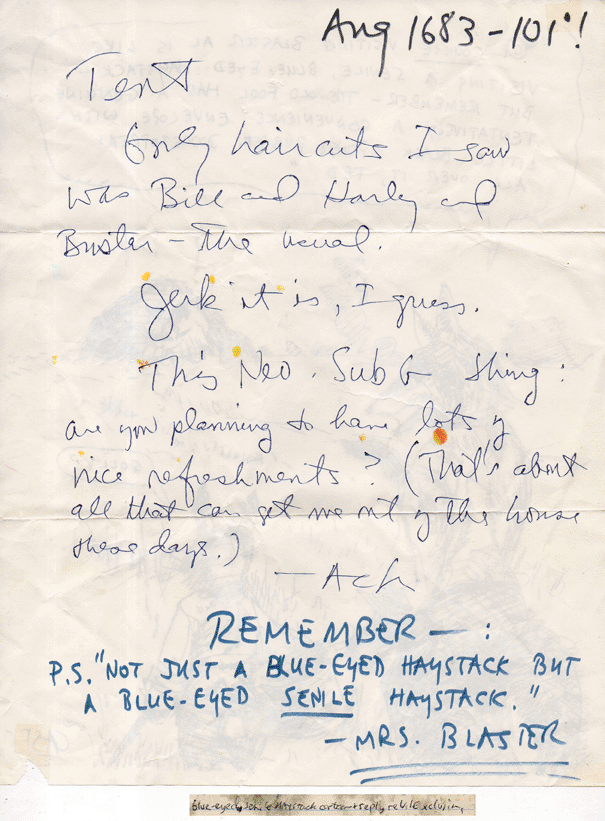 Aug 1683 - 101°!
Tent
Only haircuts I saw
was Bill and Harley and
Buster - the usual.
Jerk it is, I guess.
This Neo. Sub G thing:
are you planning to have lots of
nice refreshments? (That's about
all that can get me out of the house
these days.)
- Ach
REMEMBER - :
P.S. "NOT JUST A BLUE-EYED HAYSTACK BUT
A BLUE-EYED SENILE HAYSTACK."
- MRS. BLASTER
Blue-eyed, senile Haystack